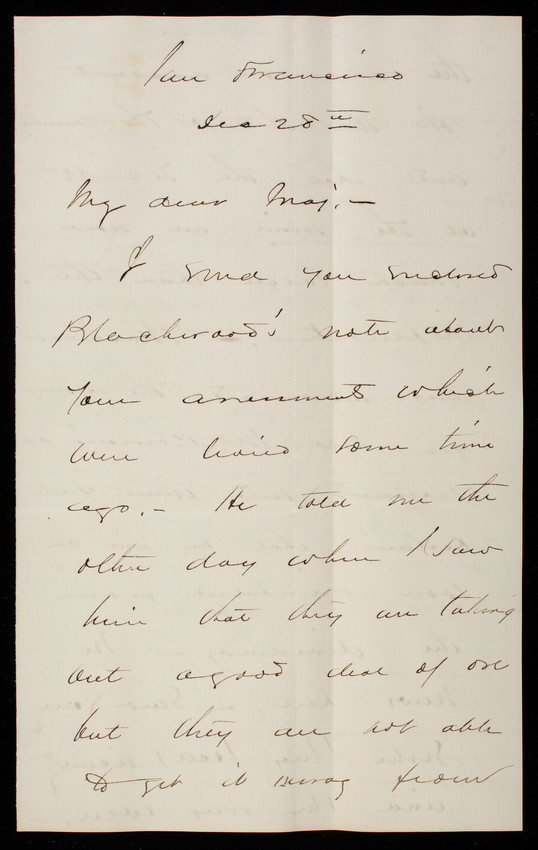 San Francisco
Dec 28th
My dear Maj. —
I send you enclosed
Blackwood's note about
your assessments which
were levied some time
ago. — He told me the
other day when I saw
him that they are taking
out a good deal of ore
but they are not able
to get it away from